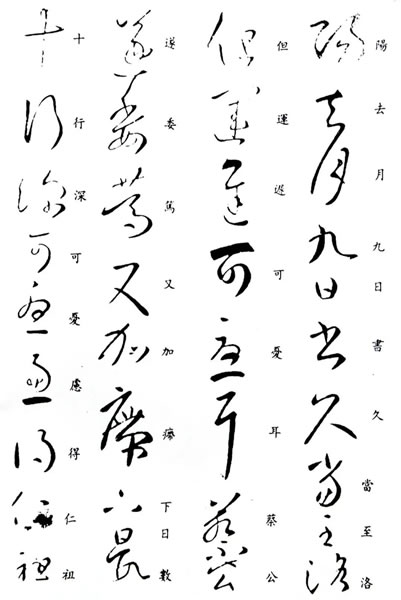 陽去月九日書久當至洛
但運遲可憂耳蔡公
遂委篤又加下日數
十行深可憂慮得仁祖